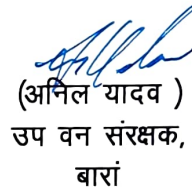 (अनिल यादव )
उप वन संरक्षक,
बारां